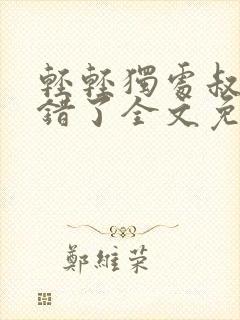 輕輕獨處叔
錯了全文免
鄭維荣